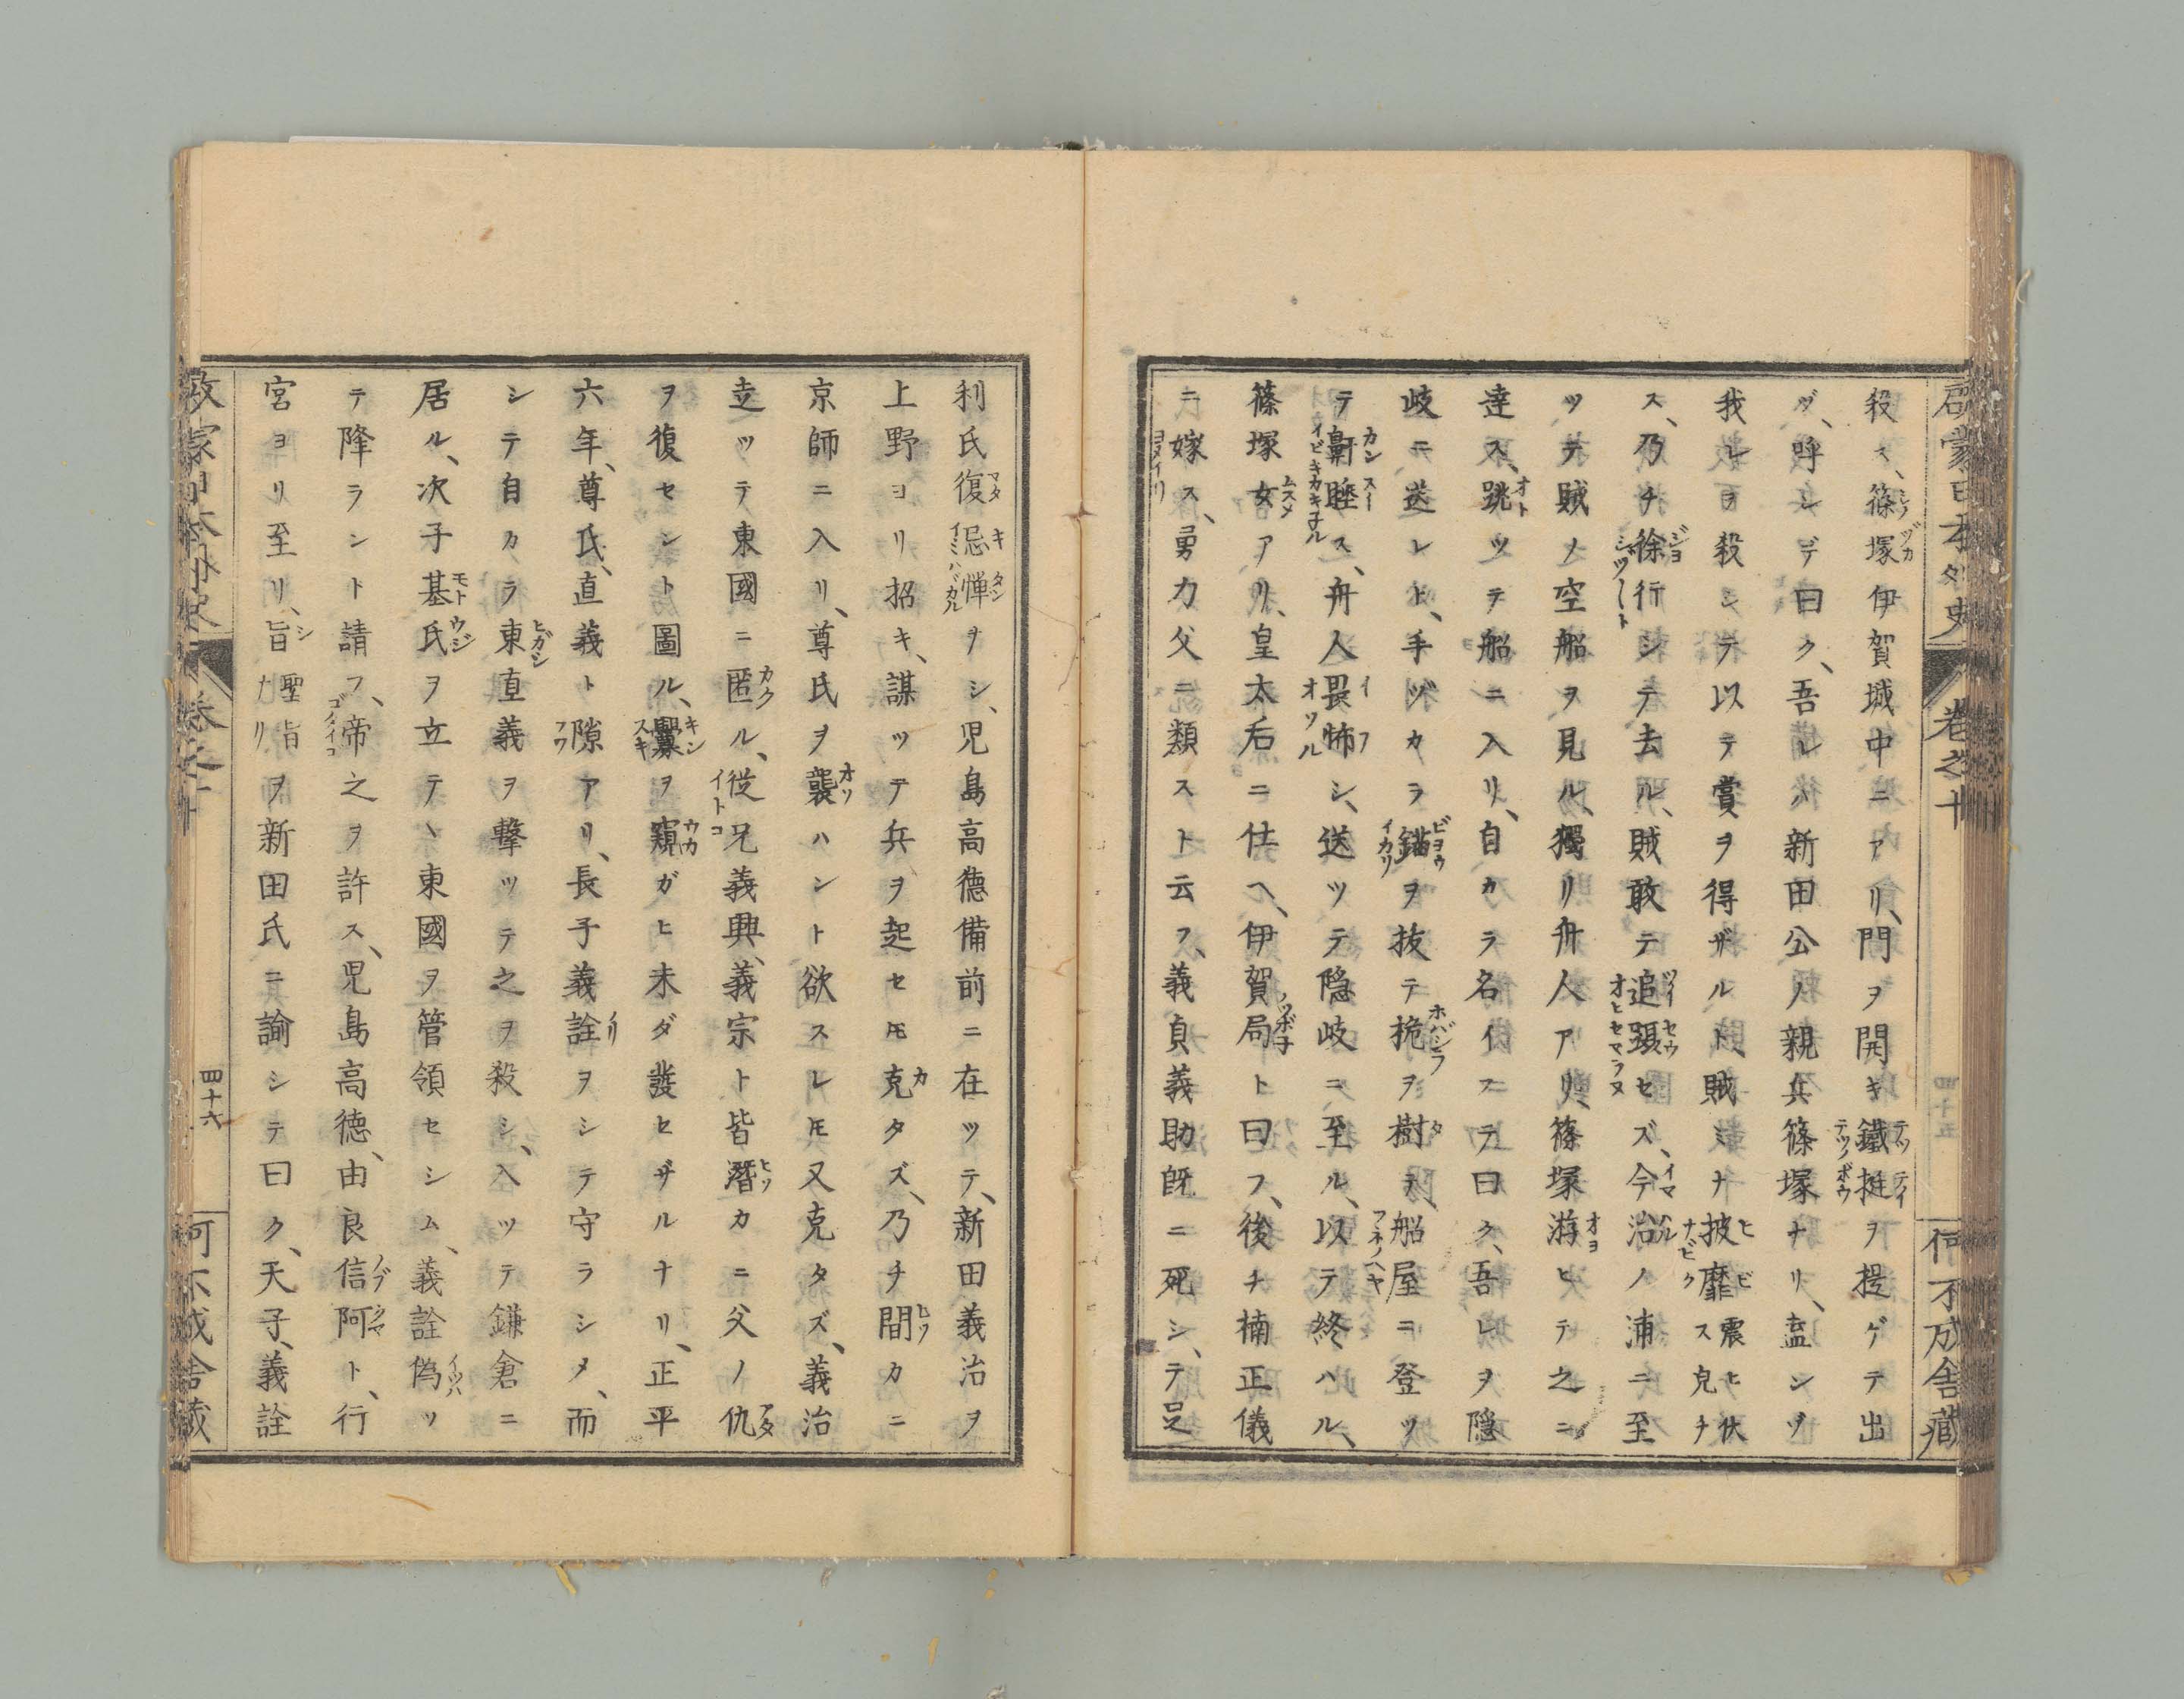 殺ス、篠塚伊賀城中ニアリ、門ヲ開キ鐵挺ヲ提ゲテ出
デ、呼ンデ曰ク、吾レハ新田公ノ親兵篠塚ナリ、盍ンゾ
我レヲ殺シテ以テ賞ヲ得ザルト、賊ミナ披靡ス
ス、乃チ徐行シテ去ル、賊敢テ追躡セズ、今治ノ浦ニ至
ツテ賊ノ空船ヲ見ル、獨リ舟人アリ、篠塚游ヒテ之ニ
達ス、跳ツテ船ニ入リ、自カラ名イフテ曰ク、吾レヲ隠
岐ニ送レト、手ヅカラ錨ヲ抜テ桅ヲ樹テ、船屋ニ登ツ
テ鼾睡ス、舟人畏怖シ、送ツテ隠岐ニ至ル、以テ終ハル、
篠塚女アリ、皇太后ニ仕ヘ、伊賀局ト曰フ、後チ楠正儀
ニ嫁ス、勇力父ニ類スト云フ、義貞義助既ニ死シ、テ足
利氏復忌憚ヲシ、児島高德備前ニ在ツテ、新田義治ヲ
上野ヨリ招キ、謀ツテ兵ヲ起セ𪜈克タズ、乃チ間カニ
京師ニ入リ、尊氏ヲ襲ハント欲スレ𪜈又克タズ、義治
走ツテ東國ニ匿ル、従兄義興、義宗ト皆潜カニ父ノ仇
ヲ復セント圖ル、釁ヲ窺ガヒ未ダ發セザルナリ、正平
六年、尊氏、直義ト隙アリ、長子義詮ヲシテ守ラシメ、而
シテ自カラ東直義ヲ撃ツテ之ヲ殺シ、入ツテ鎌倉ニ
居ル、次子基氏ヲ立テヽ東國ヲ管領セシム、義詮偽ツ
テ降ラント請フ、帝之ヲ許ス、児島高德、由良信阿ト、行
宮ヨリ至リ、旨聖旨ナリヲ新田氏ニ諭シテ曰ク、天子、義詮
四十六